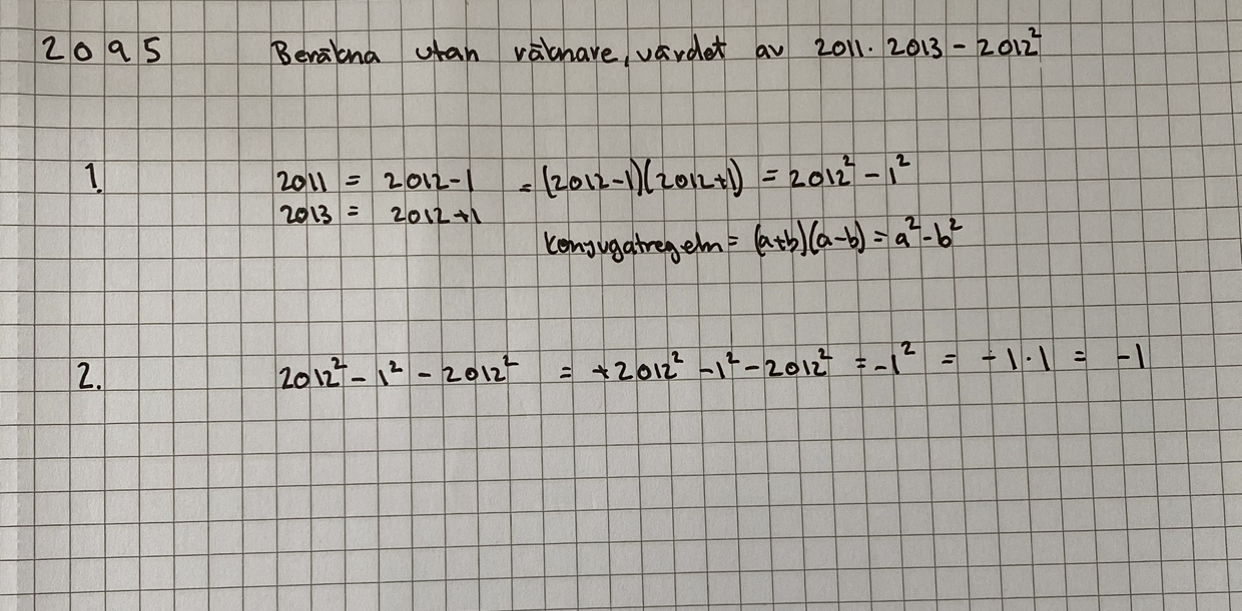 2095 Beräkna utan räknare, värdet av 2011 · 2013 - 2012²
1. 2011 = 2012-1 = (2012-1)(2012+1) = 2012² - 1²
2013 = 2012+1
Konjugatregeln = (a+b)(a-b) = a² - b²
2. 2012² - 1² - 2012² = +2012² - 1² - 2012² = -1² = -1 · 1 = -1